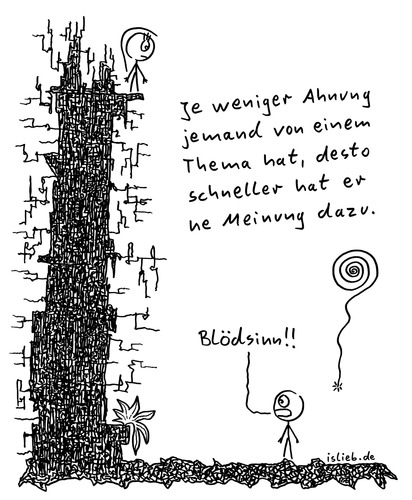 Je weniger Ahnung
jemand von einem
Thema hat, desto
schneller hat er
ne Meinung dazu.
Blödsinn!!
islieb.de